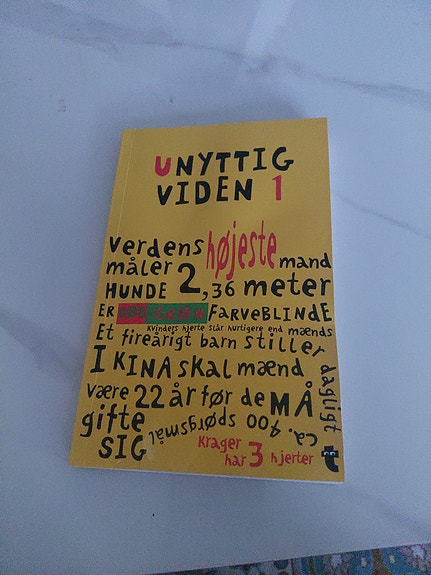 UNYTTIG
VIDEN 1
Verdens højeste mand
måler 2,36 meter
HUNDE
ER RØD-GRØN FARVEBLINDE
Kvinders hjerte slår hurtigere end mænds
Et fireårigt barn stiller dagligt
ca. 400 spørgsmål
I KINA skal mænd
være 22 år før de MÅ
gifte
SIG
Krager
har 3 hjerter
t